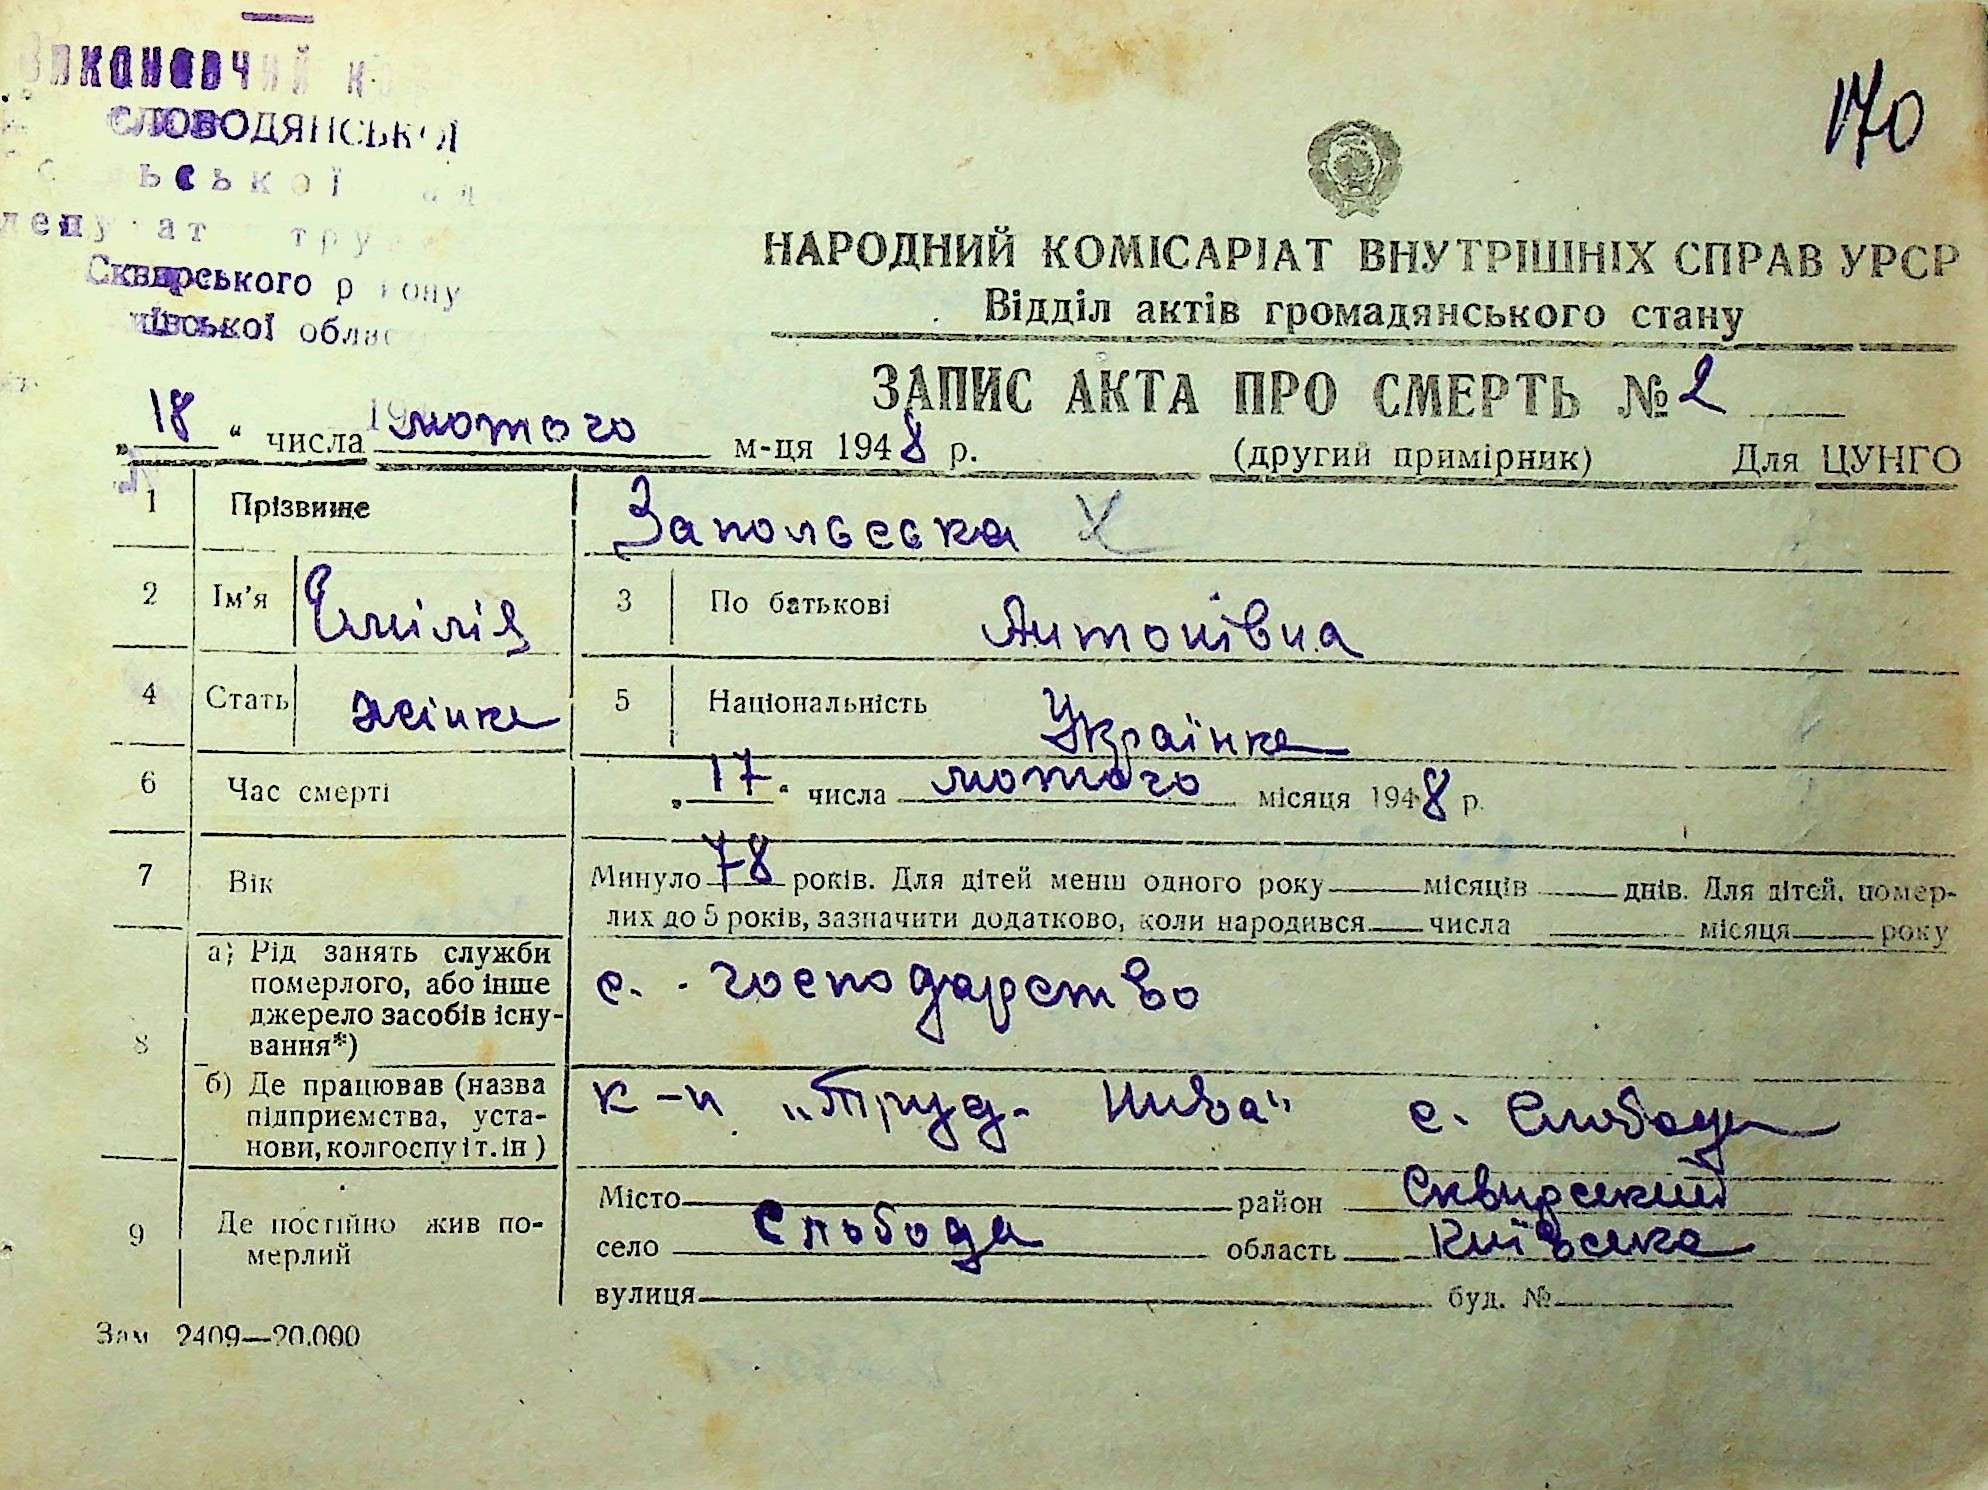 170
СЛОВОДЯНСЬКОЇ
Сквирського
НАРОДНИЙ КОМІСАРІАТ ВНУТРІШНІХ СПРАВ УРСР
Відділ актів громадянського стану
ЗАПИС АКТА ПРО СМЕРТЬ № 2
„18“ числа лютого м-ця 1948 р. (другий примірник) Для ЦУНГО
1 Прізвище Запольсська X
2 Ім'я Емілія 3 По батькові Антонівна
4 Стать жінка 5 Національність Українка
6 Час смерті „17“ числа лютого місяця 1948 р.
7 Вік Минуло 78 років. Для дітей менш одного року місяців днів. Для дітей, помер-
лих до 5 років, зазначити додатково, коли народився числа місяця року
8 а) Рід занять служби
померлого, або інше
джерело засобів існу-
вання*)
с. - господарство
б) Де працював (назва
підприємства, уста-
нови, колгоспу і т. ін)
к-п „Труд. Нива" с. Слобода
9 Де постійно жив по-
мерлий
Місто район Сквирський
село Слобода область Київська
вулиця буд. №
Зам 2409—20.000